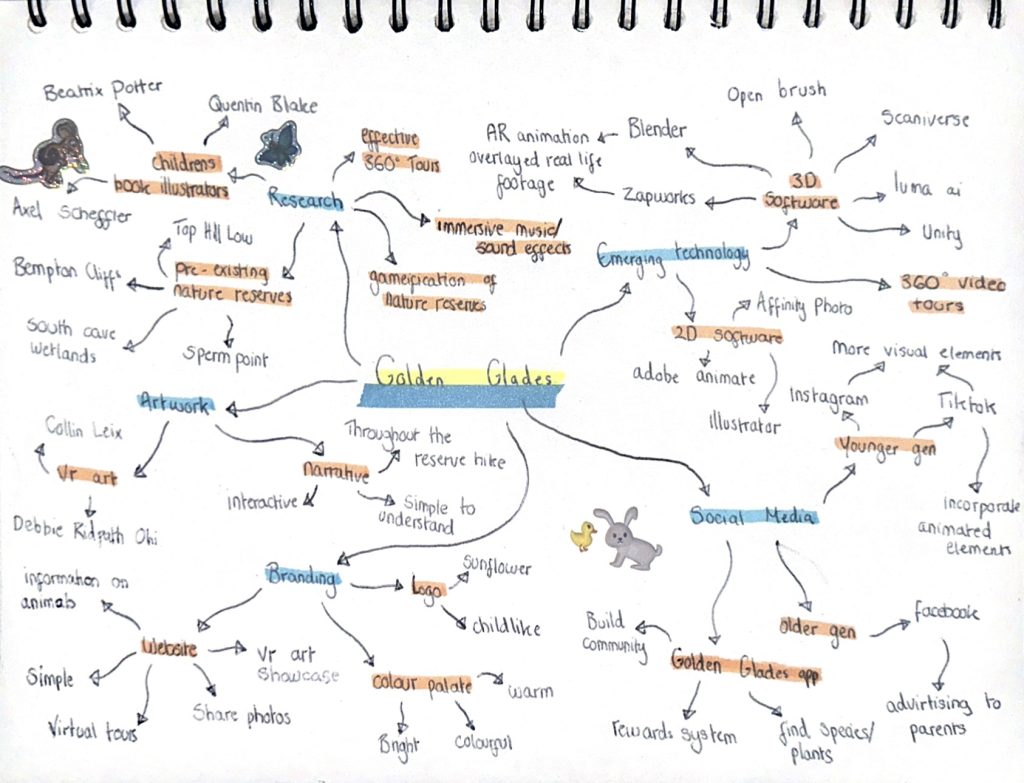 Beatrix Potter
Quentin Blake
Childrens
book illustrators
Axel Scheffler
Research
effective
360° Tours
immersive music/
sound effects
gameification of
nature reserves
Pre-existing
nature reserves
Top Hill Low
Bempton Cliffs
South cave
wetlands
Sperm point
Open brush
Scaniverse
Blender
AR animation
overlayed real life
footage
Zapworks
3D
Software
luma ai
Unity
Emerging technology
360° video
tours
2D software
Affinity Photo
adobe animate
Illustrator
Golden Glades
Artwork
Collin Leix
Vr art
Debbie Ridpath Ohi
Narrative
Throughout the
reserve hike
interactive
Simple to
understand
More visual elements
Instagram
Tiktok
Younger gen
incorporate
animated
elements
Social Media
older gen
facebook
advirtising to
parents
Golden Glades app
Build
community
rewards system
find species/
plants
Branding
Logo
Sunflower
childlike
Website
information on
animals
Simple
Virtual tours
Share photos
Vr art
Showcase
colour palate
warm
Bright
Colourful